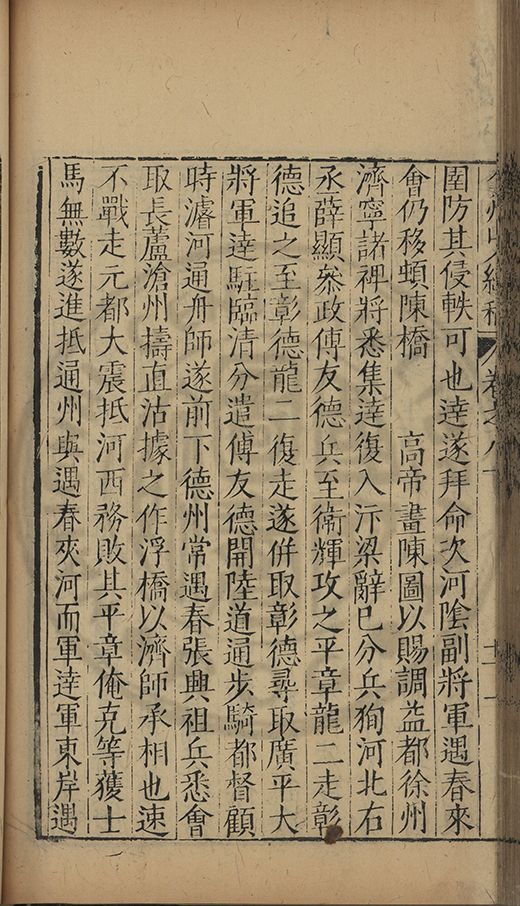 圍防其侵軼可也達遂拜命次河陰副將軍遇春來
會仍移蝢陳橋　高帝畫陳圖以賜調益都徐州
濟寧諸裨將悉集達復入汴梁辭巳分兵狥河北右
丞薛顯叅政傅友德兵至衞輝攻之平章龍二走彰
德追之至彰德龍二復走遂併取彰德尋取廣平大
將軍達駐臨清分遣傅友德開陸道通步騎都督顧
時濬河通舟師遂前下德州常遇春張興祖兵悉會
取長蘆滄州擣直沽據之作浮橋以濟師承相也速
不戰走元都大震抵河西務敗其平章俺克等獲士
馬無數遂進抵通州與遇春夾河而軍達軍東岸遇